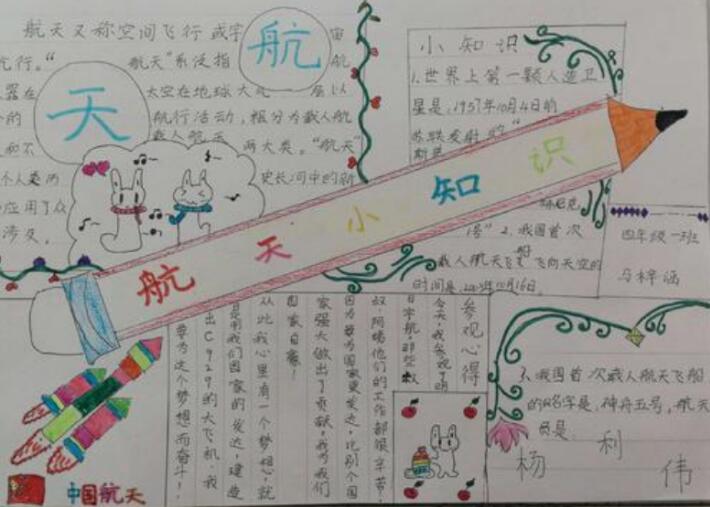 航天又称空间飞行或宇宙
航行。“航天”系泛指航
太空在地球大气
航行活动,粗分为载人航
两大类。“航天”
史长河中的新
个人类
应用了众
涉及。
天
航
小知识
1.世界上第一颗人造卫
星是,1957年10月4日的
苏联发射的“
号”2.我国首次
载人航天飞船飞向天空的
时间是2003年10月16日。
四年级一班
马梓涵
航天小知识
参观心得
今天,我参观了明
日宇航,那些
奴,阿姨他们的工作都很辛苦!
因为要为国家更发达,比别个国
家强大做出了贡献,我为我们
国家自豪!
从此我心里有一个梦想,就
是用我们国家的发达,建造
出C929的大飞机,我
要为这个梦想而奋斗!
3.我国首次载人航天飞船
的名字是,神舟五号,航天
员是
杨利伟
中国航天